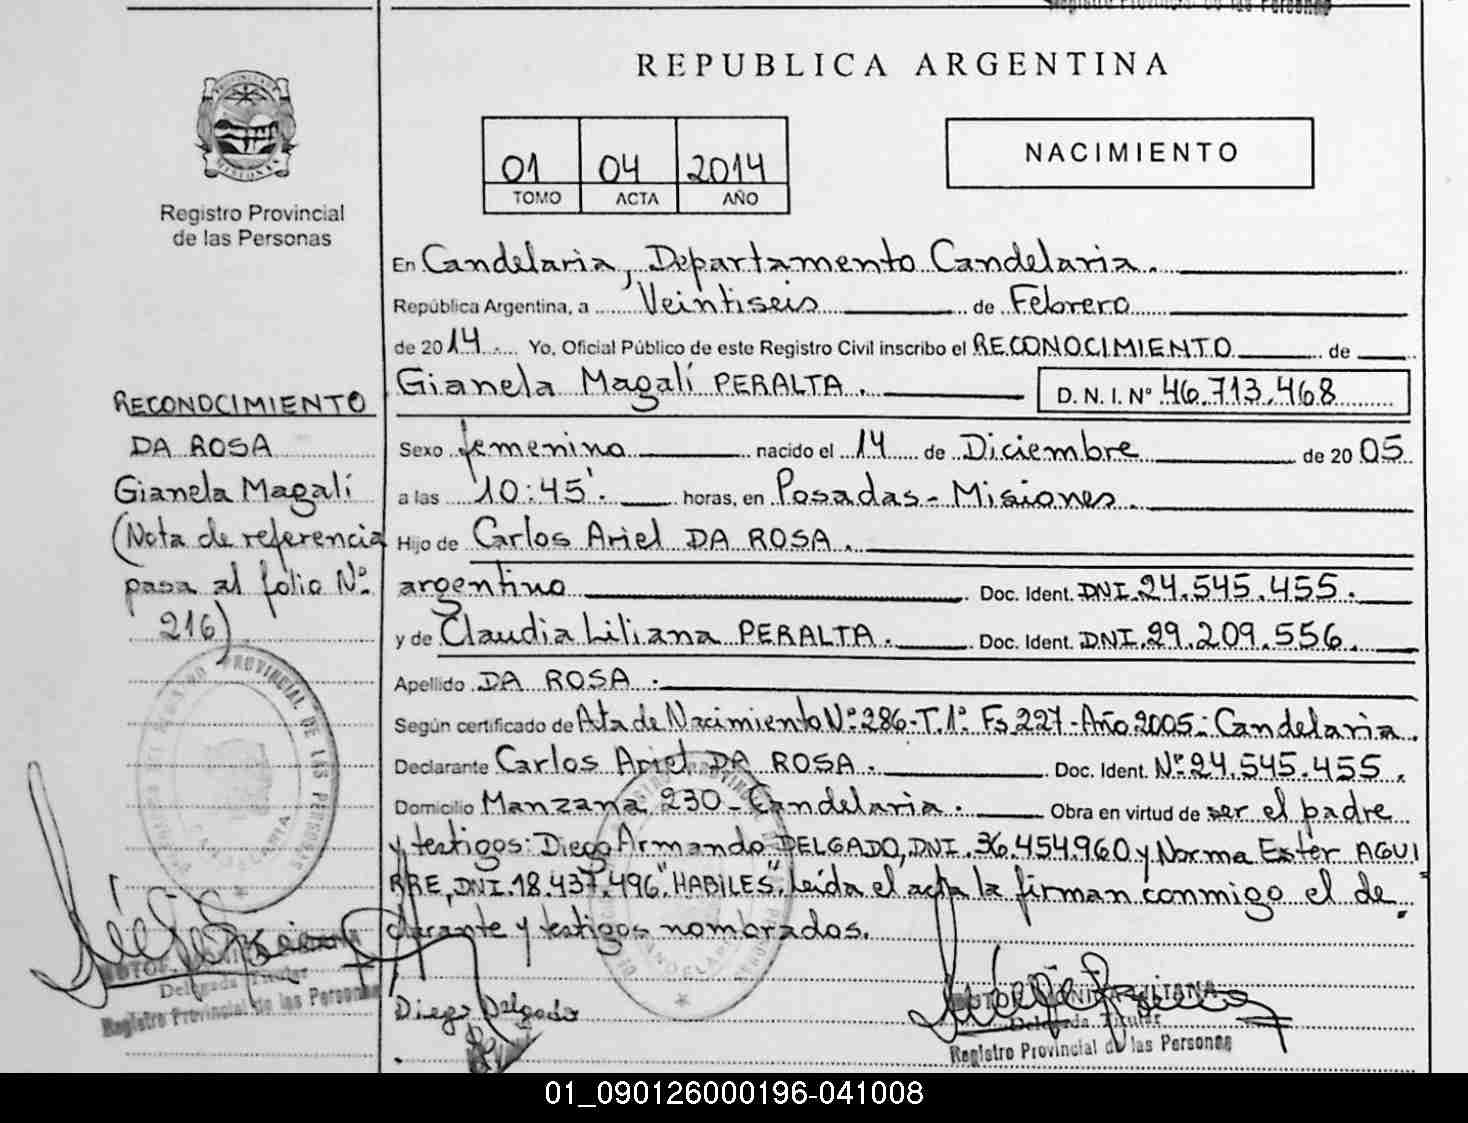 Registro Provincial de las Personas
REPUBLICA ARGENTINA
01 04 2014
TOMO ACTA AÑO
NACIMIENTO
Registro Provincial
de las Personas
En Candelaria, Departamento Candelaria.
República Argentina, a Veintiseis de Febrero
de 2014. Yo, Oficial Público de este Registro Civil inscribo el RECONOCIMIENTO de
Gianela Magalí PERALTA. D. N. I. Nº 46.713.468
Sexo femenino nacido el 14 de Diciembre de 2005
a las 10:45'. horas, en Posadas - Misiones.
Hijo de Carlos Ariel DA ROSA.
argentino Doc. Ident. DNI. 24.545.455.
y de Claudia Liliana PERALTA. Doc. Ident. DNI. 29.209.556.
Apellido DA ROSA.
Según certificado de Ata de Nacimiento Nº 286-T.1º Fs 227-Año 2005-Candelaria.
Declarante Carlos Ariel DA ROSA. Doc. Ident. Nº 24.545.455.
Domicilio Manzana 230 - Candelaria. Obra en virtud de ser el padre
y testigos: Diego Armando DELGADO, DNI. 36.454.960 y Norma Ester AGUI
RRE, DNI. 18.437.496 "HABILES". Leída el acta la firman conmigo el de
clarante y testigos nombrados.
RECONOCIMIENTO
DA ROSA
Gianela Magalí
(Nota de referencia
pasa al folio Nº
216)
PROVINCIAL DE LAS PERSONAS
CANDELARIA
Delegada Titular
Registro Provincial de las Personas
Diego Delgado
CANDELARIA
Delegada Titular
Registro Provincial de las Personas
01_090126000196-041008